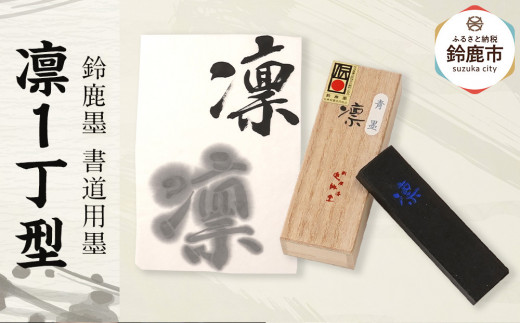 凛1丁型
鈴鹿墨 書道用墨
凛
凛
伝
青墨
凛
凛
ふるさと納税
鈴鹿市
suzuka city